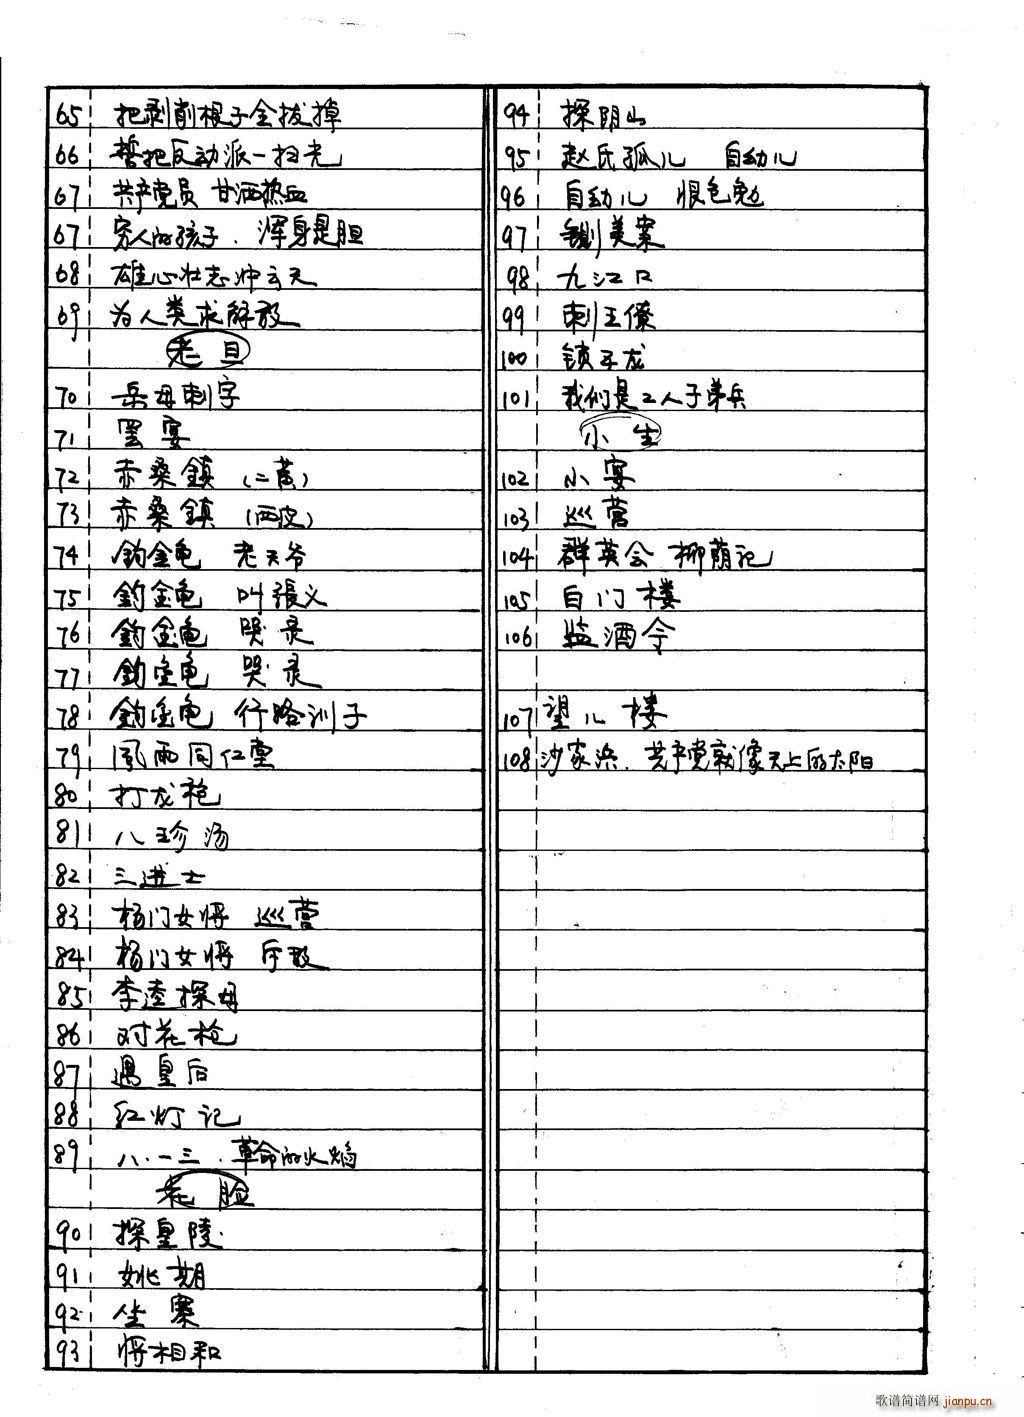 65 把剥削根子全拔掉
66 誓把反动派一扫光
67 共产党员 甘洒热血
67 穷人的孩子. 浑身是胆
68 雄心壮志冲云天
69 为人类求解放
老旦
70 岳母刺字
71 罢宴
72 赤桑鎮 (二黄)
73 赤桑鎮 (西皮)
74 钓金龟 老天爷
75 钓金龟 叫張义
76 钓金龟 哭灵
77 钓金龟 哭灵
78 钓金龟 行路训子
79 風雨同仁堂
80 打龙袍
81 八珍汤
82 三进士
83 杨门女将 巡营
84 杨门女将
85 李逵探母
86 对花枪
87 遇皇后
88 红灯记
89 八.一三.革命的火焰
花脸
90 探皇陵
91 姚期
92 坐寨
93 将相和
94 探阴山
95 赵氏孤儿 自幼儿
96 自幼儿
97 铡美案
98 九江口
99 刺王僚
100 锁五龙
101 我们是工人子弟兵
小生
102 小宴
103 巡营
104 群英会 柳荫记
105 白门楼
106 监酒令
107 望儿楼
108 沙家浜. 共产党就像天上的太阳
歌谱简谱网 jianpu.cn